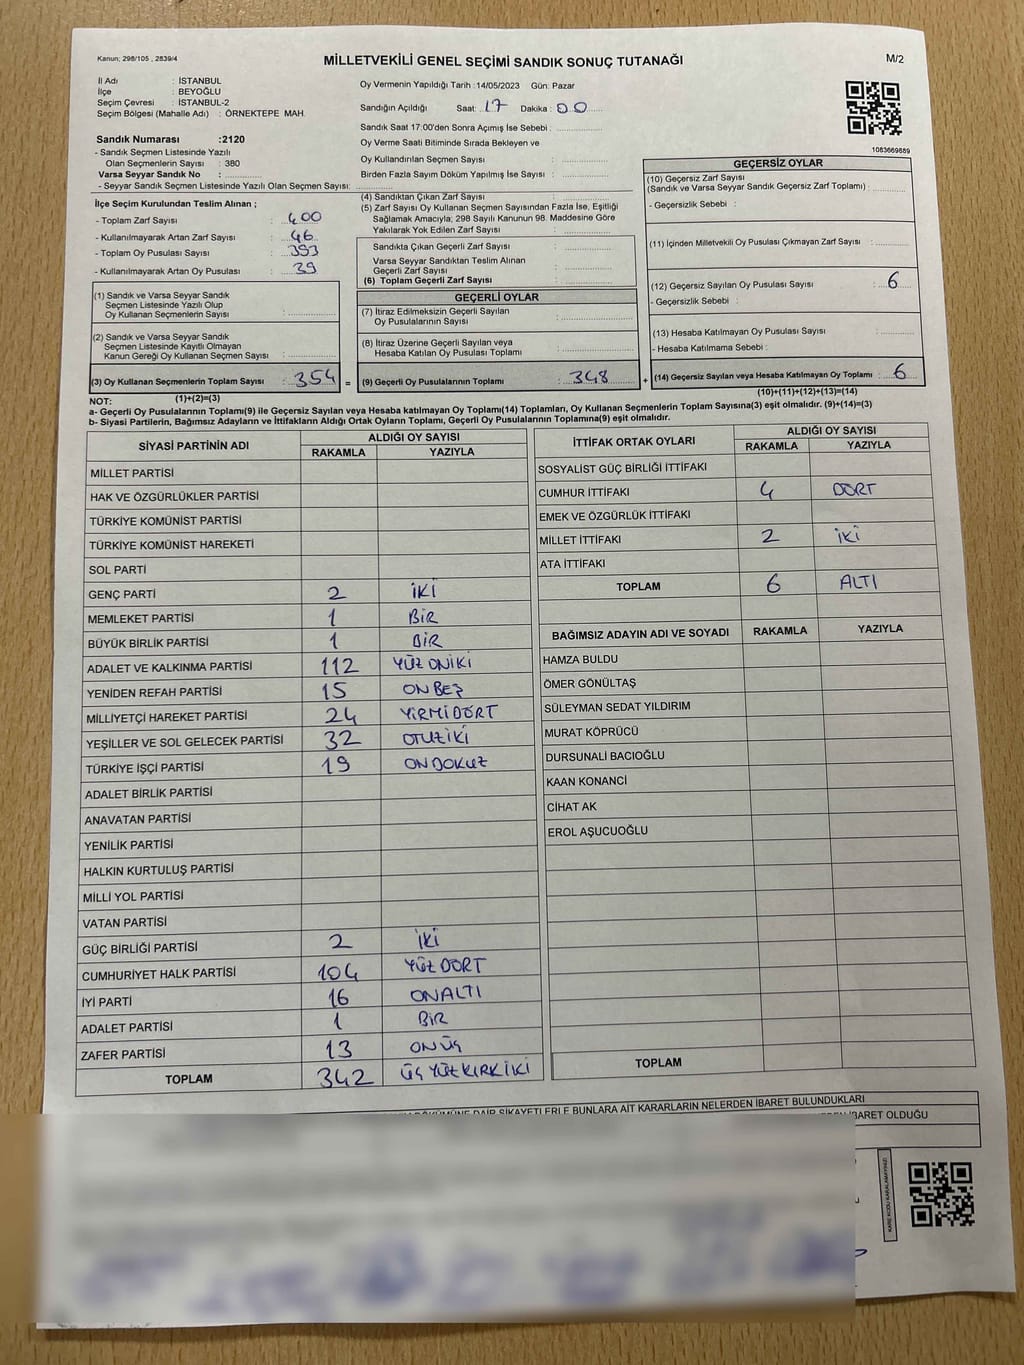 Kanun; 298/105 , 2839/4
MİLLETVEKİLİ GENEL SEÇİMİ SANDIK SONUÇ TUTANAĞI
M/2
İl Adı : İSTANBUL
İlçe : BEYOĞLU
Seçim Çevresi : İSTANBUL-2
Seçim Bölgesi (Mahalle Adı) : ÖRNEKTEPE MAH.
Oy Vermenin Yapıldığı Tarih :14/05/2023 Gün: Pazar
Sandığın Açıldığı Saat: 17 Dakika : 00
Sandık Saat 17:00'den Sonra Açımış İse Sebebi :
Oy Verme Saati Bitiminde Sırada Bekleyen ve
Oy Kullandırılan Seçmen Sayısı :
Birden Fazla Sayım Döküm Yapılmış İse Sayısı :
1083669889
Sandık Numarası :2120
- Sandık Seçmen Listesinde Yazılı
Olan Seçmenlerin Sayısı : 380
Varsa Seyyar Sandık No :
- Seyyar Sandık Seçmen Listesinde Yazılı Olan Seçmen Sayısı:
İlçe Seçim Kurulundan Teslim Alınan ;
- Toplam Zarf Sayısı : 400
- Kullanılmayarak Artan Zarf Sayısı : 46
- Toplam Oy Pusulası Sayısı : 393
- Kullanılmayarak Artan Oy Pusulası : 39
(1) Sandık ve Varsa Seyyar Sandık
Seçmen Listesinde Yazılı Olup
Oy Kullanan Seçmenlerin Sayısı :
(2) Sandık ve Varsa Seyyar Sandık
Seçmen Listesinde Kayıtlı Olmayan
Kanun Gereği Oy Kullanan Seçmen Sayısı :
(3) Oy Kullanan Seçmenlerin Toplam Sayısı : 354 =
(4) Sandıktan Çıkan Zarf Sayısı :
(5) Zarf Sayısı Oy Kullanan Seçmen Sayısından Fazla İse, Eşitliği
Sağlamak Amacıyla; 298 Sayılı Kanunun 98. Maddesine Göre
Yakılarak Yok Edilen Zarf Sayısı :
Sandıkta Çıkan Geçerli Zarf Sayısı :
Varsa Seyyar Sandıktan Teslim Alınan
Geçerli Zarf Sayısı :
(6) Toplam Geçerli Zarf Sayısı :
GEÇERLİ OYLAR
(7) İtiraz Edilmeksizin Geçerli Sayılan
Oy Pusulalarının Sayısı :
(8) İtiraz Üzerine Geçerli Sayılan veya
Hesaba Katılan Oy Pusulası Toplamı :
(9) Geçerli Oy Pusulalarının Toplamı : 348 +
GEÇERSİZ OYLAR
(10) Geçersiz Zarf Sayısı
(Sandık ve Varsa Seyyar Sandık Geçersiz Zarf Toplamı) :
- Geçersizlik Sebebi :
(11) İçinden Milletvekili Oy Pusulası Çıkmayan Zarf Sayısı :
(12) Geçersiz Sayılan Oy Pusulası Sayısı : 6
- Geçersizlik Sebebi :
(13) Hesaba Katılmayan Oy Pusulası Sayısı :
- Hesaba Katılmama Sebebi :
(14) Geçersiz Sayılan veya Hesaba Katılmayan Oy Toplamı : 6
NOT: (1)+(2)=(3) (10)+(11)+(12)+(13)=(14)
a- Geçerli Oy Pusulalarının Toplamı(9) ile Geçersiz Sayılan veya Hesaba katılmayan Oy Toplamı(14) Toplamları, Oy Kullanan Seçmenlerin Toplam Sayısına(3) eşit olmalıdır. (9)+(14)=(3)
b- Siyasi Partilerin, Bağımsız Adayların ve İttifakların Aldığı Ortak Oyların Toplamı, Geçerli Oy Pusulalarının Toplamına(9) eşit olmalıdır.
SİYASİ PARTİNİN ADI ALDIĞI OY SAYISI
RAKAMLA YAZIYLA
MİLLET PARTİSİ
HAK VE ÖZGÜRLÜKLER PARTİSİ
TÜRKİYE KOMÜNİST PARTİSİ
TÜRKİYE KOMÜNİST HAREKETİ
SOL PARTİ
GENÇ PARTİ 2 İKİ
MEMLEKET PARTİSİ 1 BİR
BÜYÜK BİRLİK PARTİSİ 1 BİR
ADALET VE KALKINMA PARTİSİ 112 YÜZ ONİKİ
YENİDEN REFAH PARTİSİ 15 ONBEŞ
MİLLİYETÇİ HAREKET PARTİSİ 24 YİRMİDÖRT
YEŞİLLER VE SOL GELECEK PARTİSİ 32 OTUZİKİ
TÜRKİYE İŞÇİ PARTİSİ 19 ONDOKUZ
ADALET BİRLİK PARTİSİ
ANAVATAN PARTİSİ
YENİLİK PARTİSİ
HALKIN KURTULUŞ PARTİSİ
MİLLİ YOL PARTİSİ
VATAN PARTİSİ
GÜÇ BİRLİĞİ PARTİSİ 2 İKİ
CUMHURİYET HALK PARTİSİ 104 YÜZ DÖRT
İYİ PARTİ 16 ONALTI
ADALET PARTİSİ 1 BİR
ZAFER PARTİSİ 13 ONÜÇ
TOPLAM 342 ÜÇ YÜZ KIRK İKİ
İTTİFAK ORTAK OYLARI ALDIĞI OY SAYISI
RAKAMLA YAZIYLA
SOSYALİST GÜÇ BİRLİĞİ İTTİFAKI
CUMHUR İTTİFAKI 4 DÖRT
EMEK VE ÖZGÜRLÜK İTTİFAKI
MİLLET İTTİFAKI 2 İKİ
ATA İTTİFAKI
TOPLAM 6 ALTI
BAĞIMSIZ ADAYIN ADI VE SOYADI RAKAMLA YAZIYLA
HAMZA BULDU
ÖMER GÖNÜLTAŞ
SÜLEYMAN SEDAT YILDIRIM
MURAT KÖPRÜCÜ
DURSUNALİ BACIOĞLU
KAAN KONANCİ
CİHAT AK
EROL AŞUCUOĞLU
TOPLAM
DÖKÜMÜNE DAİR ŞİKAYETLERLE BUNLARA AİT KARARLARIN NELERDEN İBARET BULUNDUKLARI
İBARET OLDUĞU